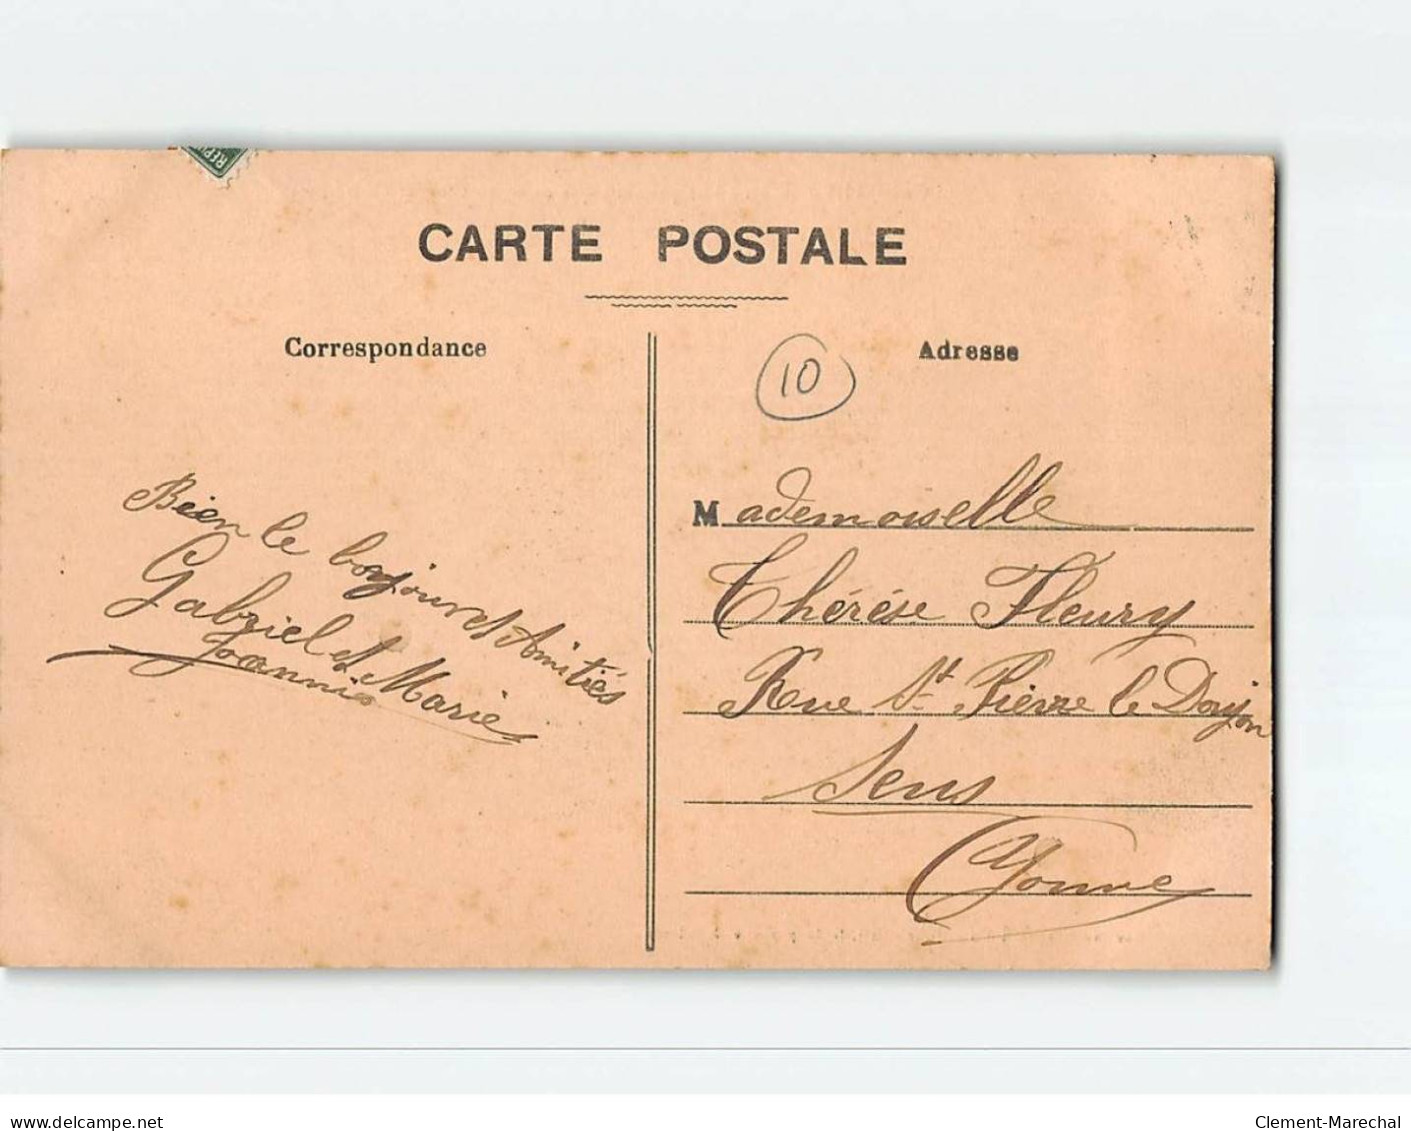 REPU
CARTE POSTALE
Correspondance
Adresse
10
Bien le bonjour et Amitiés
Gabriel et Marie
Joannis
Mademoiselle
Thérèse Fleury
Rue St Pierre le Donjon
Sens
(Yonne
www.delcampe.net
Clement-Marechal